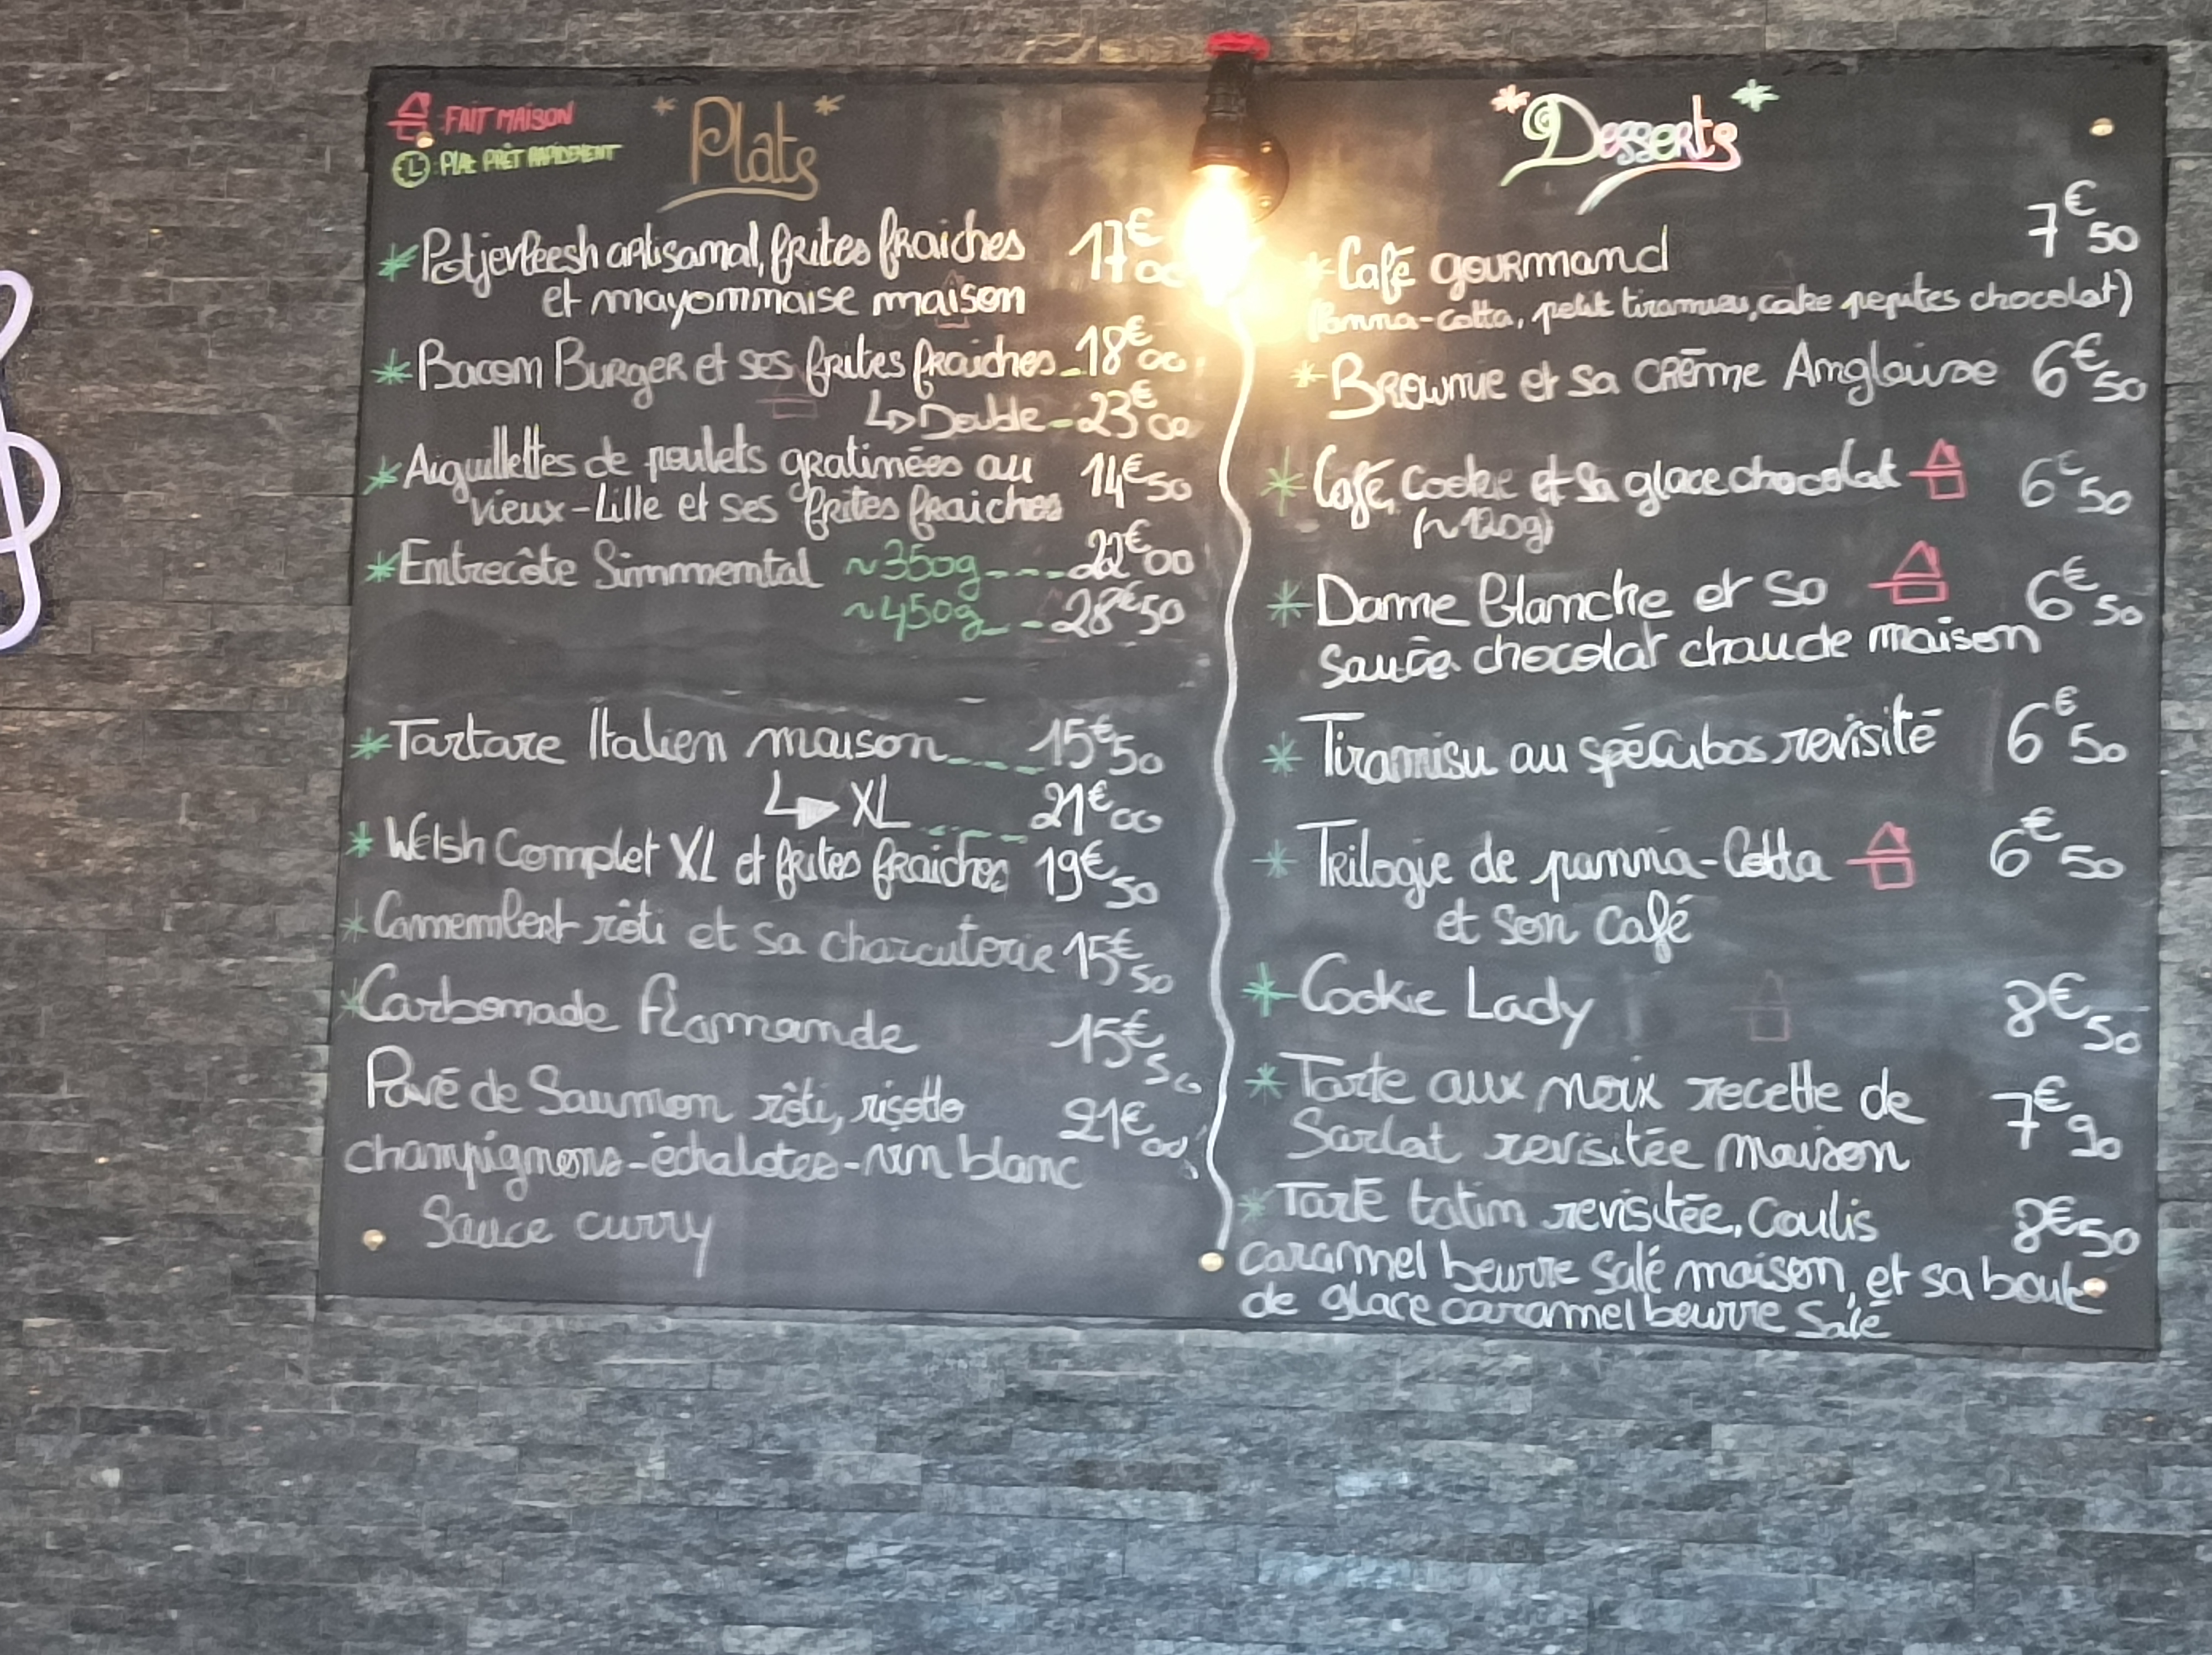 : FAIT MAISON
: PLAT PRÊT RAPIDEMENT
* Plats *
* Potjevleesh artisanal, frites fraiches 17€00
et mayonnaise maison
* Bacon Burger et ses frites fraiches 18€00
↳ Double - 23€00
* Aiguillettes de poulets gratinées au 14€50
vieux-Lille et ses frites fraiches
* Entrecôte Simmental ~350g --- 22€00
~450g -- 28€50
* Tartare Italien maison ---- 15€50
↳ XL ---- 21€00
* Welsh Complet XL et frites fraiches 19€50
* Camembert rôti et sa charcuterie 15€50
* Carbonade flamande 15€50
Pavé de Saumon rôti, risotto 21€00
champignons-échalotes-vin blanc
Sauce curry
* Desserts *
* Café gourmand 7€50
(Panna-cotta, petit tiramisu, cake pepites chocolat)
* Brownie et sa crème Anglaise 6€50
* Café, Cookie et sa glace chocolat 6€50
(~120g)
* Dame Blanche et sa 6€50
sauce chocolat chaude maison
* Tiramisu au spéculoos revisité 6€50
* Trilogie de panna-Cotta 6€50
et son café
* Cookie Lady 8€50
* Tarte aux noix recette de 7€90
Sarlat revisitée maison
* Tarte tatin revisitée, Coulis 8€50
caramel beurre salé maison, et sa boule
de glace caramel beurre salé